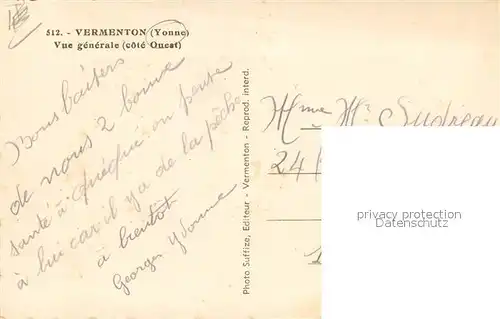 512. - VERMENTON (Yonne)
Vue générale (côté Ouest)
Bons baisers
de nous 2 bonne
santé à on pense
à lui car il y a de la pêche
à bientôt
Georges Yvonne
Photo Suffize, Editeur - Vermenton - Reprod. interd.
Mme Mr Sudreau
24
privacy protection
Datenschutz